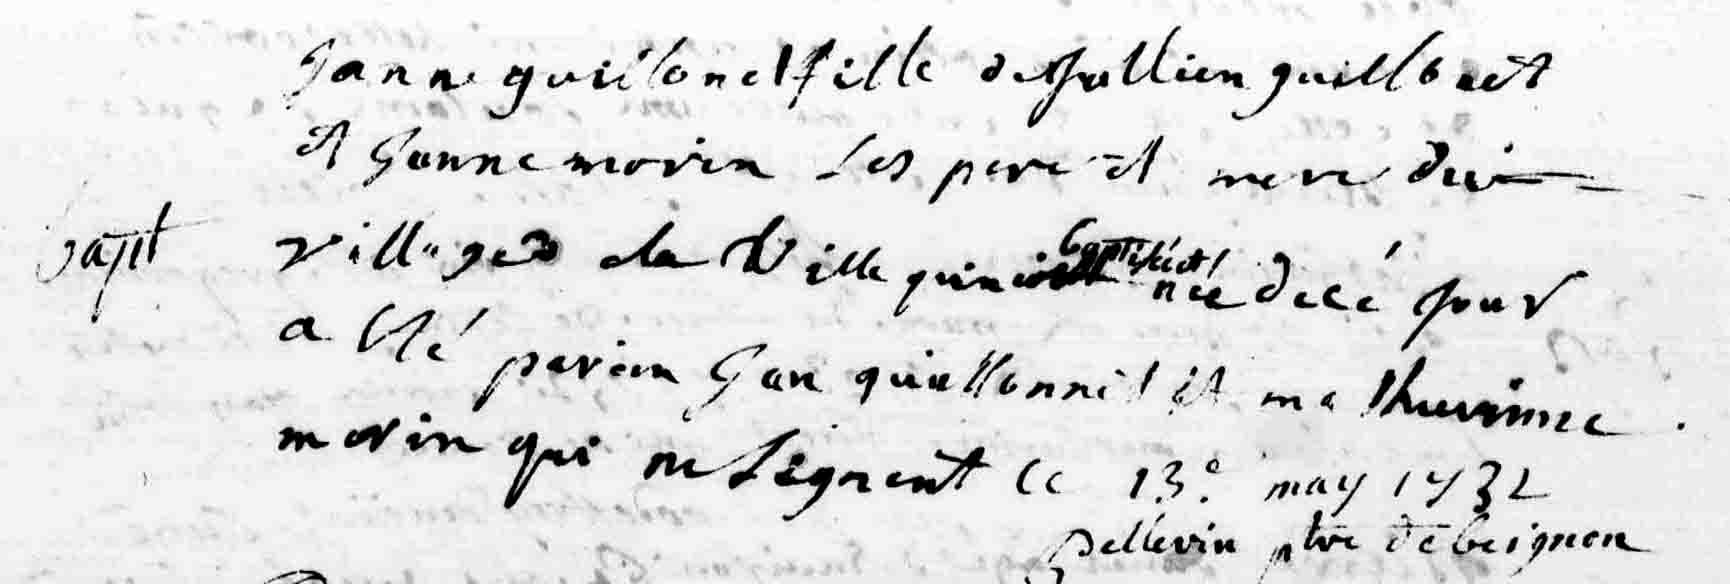 Janne guillonet fille de Jullien guillouet
et Janne morin Les pere et mere du
bapt village de la Ville quin baptisée et née de ce jour
a Esté parein Jan guillonnet et mathurinne
morin qui ne Signent ce 13e may 1732
pellerin ptre de beignon